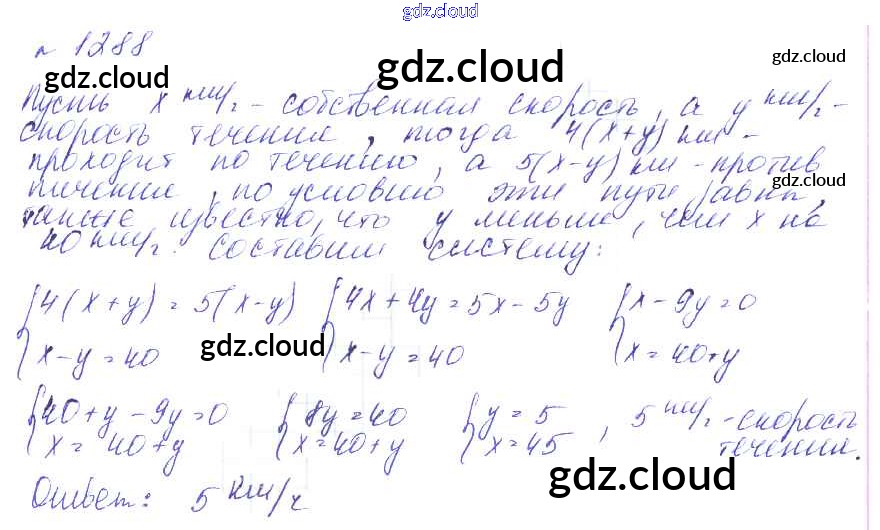 gdz.cloud
№ 1288
gdz.cloud gdz.cloud gdz.cloud
Пусть x км/г - собственная скорость, а y км/г -
скорость течения, тогда 4(x+y) км -
проходит по течению, а 5(x-y) км - против
течения, по условию эти пути равны, gdz.cloud
также известно, что y меньше, чем x на
40 км/г. составим систему:
4(x+y) = 5(x-y) 4x+4y = 5x-5y x-9y=0
x-y=40 gdz.cloud x-y=40 x=40+y
40+y-9y=0 8y=40 y=5 , 5 км/г - скорость
x=40+y x=40+y x=45 течения.
gdz.cloud
Ответ: 5 км/ч